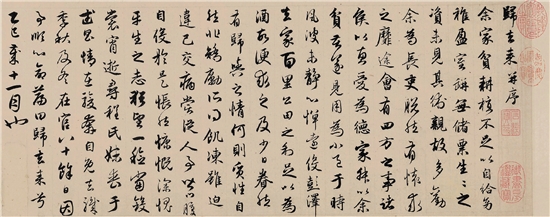 歸去来并序
余家貧耕植不足以自給幼
稚盈室缾無儲粟生生之
資未見其術親故多勸
余為長吏脫然有懷求
之靡途會有四方之事諸
侯以惠愛為德家叔以余
貧苦遂見用為小邑于時
風波未靜心憚遠役彭澤
去家百里公田之利足以為
酒故便求之及少日眷然
有歸與之情何則質性自
然非矯勵所得飢凍雖迫
違己交病嘗從人事皆口腹
自役於是悵然慷慨深愧
平生之志猶望一稔當斂
裳宵逝尋程氏妹喪于
武昌情在駿奔自免去職
季秋及冬在官八十餘日因
事順心命篇曰歸去来兮
乙巳歲十一月也